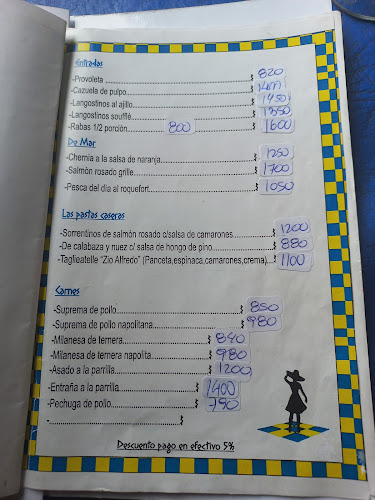 Entradas
-Provoleta $ 820
-Cazuela de pulpo $ 1400
-Langostinos al ajillo $ 1450
-Langostinos soufflé $ 1350
-Rabas 1/2 porción 800 $ 1600
De Mar
-Chernia a la salsa de naranja $ 1250
-Salmón rosado grille $ 1700
-Pesca del día al roquefort $ 1050
Las pastas caseras
-Sorrentinos de salmón rosado c/salsa de camarones $ 1200
-De calabaza y nuez c/ salsa de hongo de pino $ 880
-Taglieatelle "Zio Alfredo" (Panceta,espinaca,camarones,crema) $ 1100
Carnes
-Suprema de pollo $ 850
-Suprema de pollo napolitana $ 980
-Milanesa de ternera $ 840
-Milanesa de ternera napolita $ 980
-Asado a la parrilla $ 1200
-Entraña a la parrilla $ 1400
-Pechuga de pollo $ 790
- $
Descuento pago en efectivo 5%